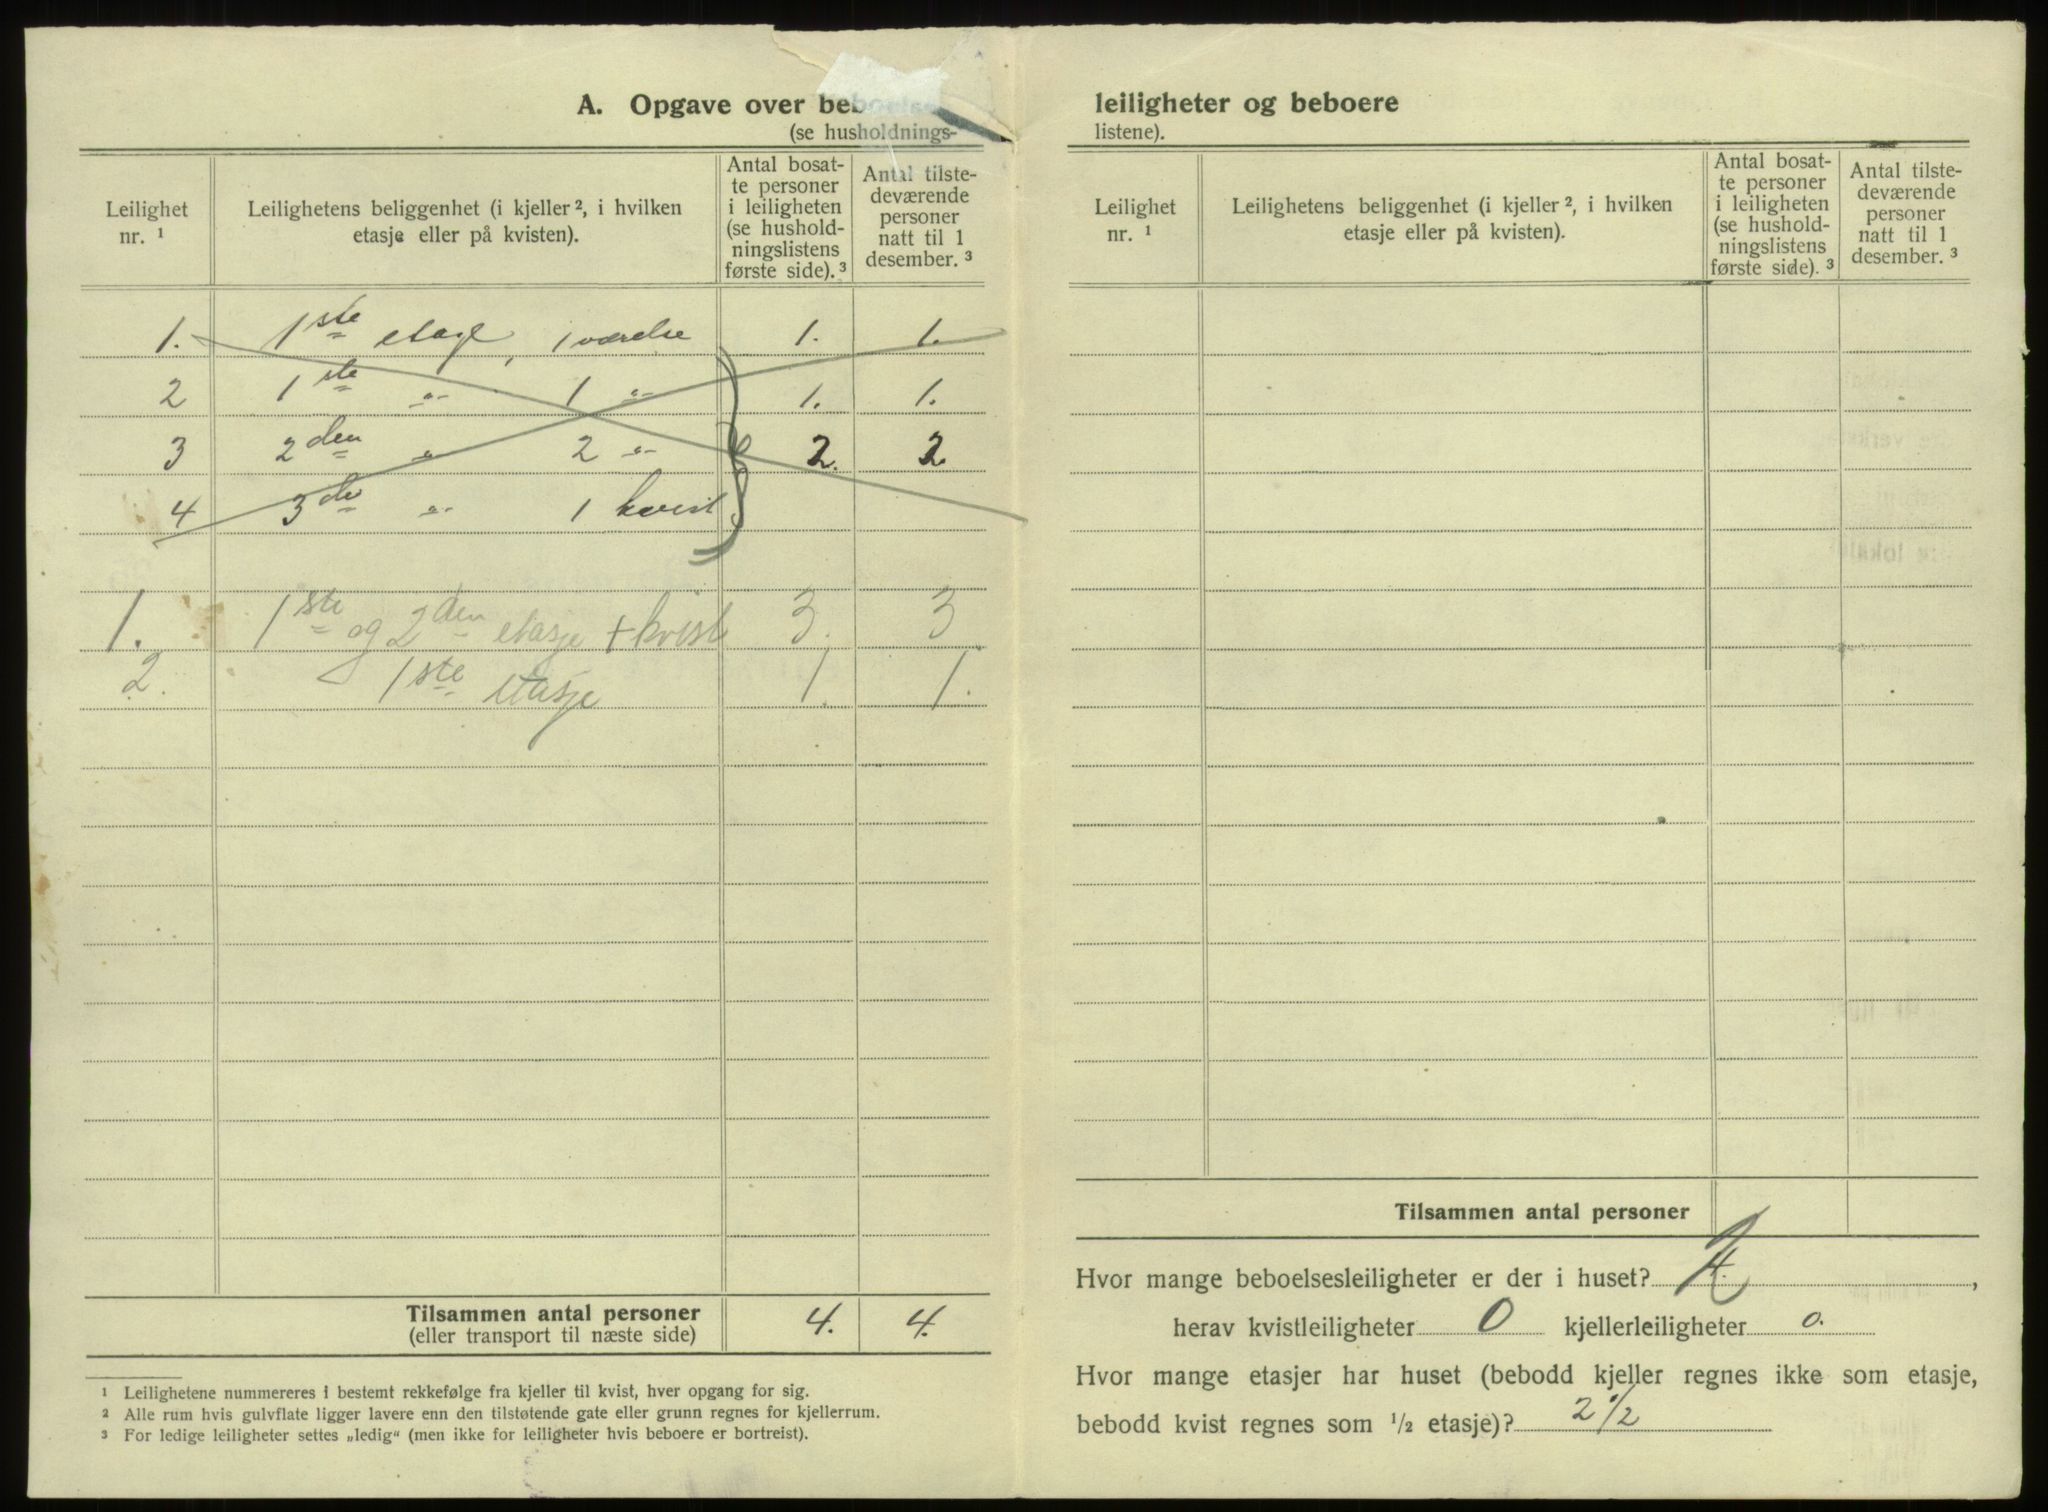 A. Opgave over beb
(se husholdnings-
Leilighet nr. ¹
Leilighetens beliggenhet (i kjeller ², i hvilken etasje eller på kvisten).
Antal bosat-
te personer
i leiligheten
(se hushold-
ningslistens
første side). ³
Antal tilste-
deværende
personer
natt til 1
desember. ³
1. 1ste etage, 1 værelse 1. 1.
2 1ste " 1 " 1. 1.
3 2den " 2 " 2. 2
4 3de " 1 kvist
1. 1ste og 2den etasje + kvist 3. 3
2. 1ste etasje 1. 1.
Tilsammen antal personer 4. 4.
(eller transport til næste side)
¹ Leilighetene nummereres i bestemt rekkefølge fra kjeller til kvist, hver opgang for sig.
² Alle rum hvis gulvflate ligger lavere enn den tilstøtende gate eller grunn regnes for kjellerrum.
³ For ledige leiligheter settes „ledig“ (men ikke for leiligheter hvis beboere er bortreist).
leiligheter og beboere
listene).
Leilighet nr. ¹
Leilighetens beliggenhet (i kjeller ², i hvilken etasje eller på kvisten).
Antal bosat-
te personer
i leiligheten
(se hushold-
ningslistens
første side). ³
Antal tilste-
deværende
personer
natt til 1
desember. ³
Tilsammen antal personer
Hvor mange beboelsesleiligheter er der i huset? 2,
herav kvistleiligheter 0 kjellerleiligheter 0.
Hvor mange etasjer har huset (bebodd kjeller regnes ikke som etasje,
bebodd kvist regnes som ½ etasje)? 2 1/2